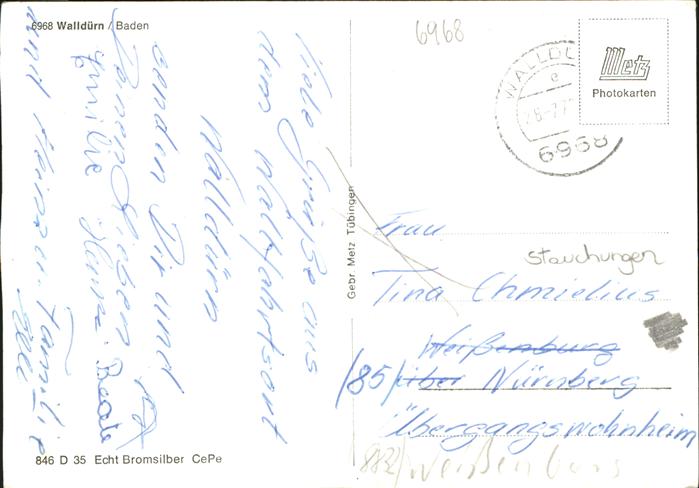 6968 Walldürn / Baden
Liebe Grüße aus
dem Wallfahrtsort
Walldürn
senden Dir und
Deinen Lieben
Familie Heinz. Beate
und Heinz u. Familie
846 D 35 Echt Bromsilber CePe
Gebr. Metz Tübingen
6968
WALLDÜ
e
6968
Metz
Photokarten
Frau
Stauchungen
Tina Chmielius
Weißenburg
/85/ über Nürnberg
Übergangswohnheim
8832/Weißenburg